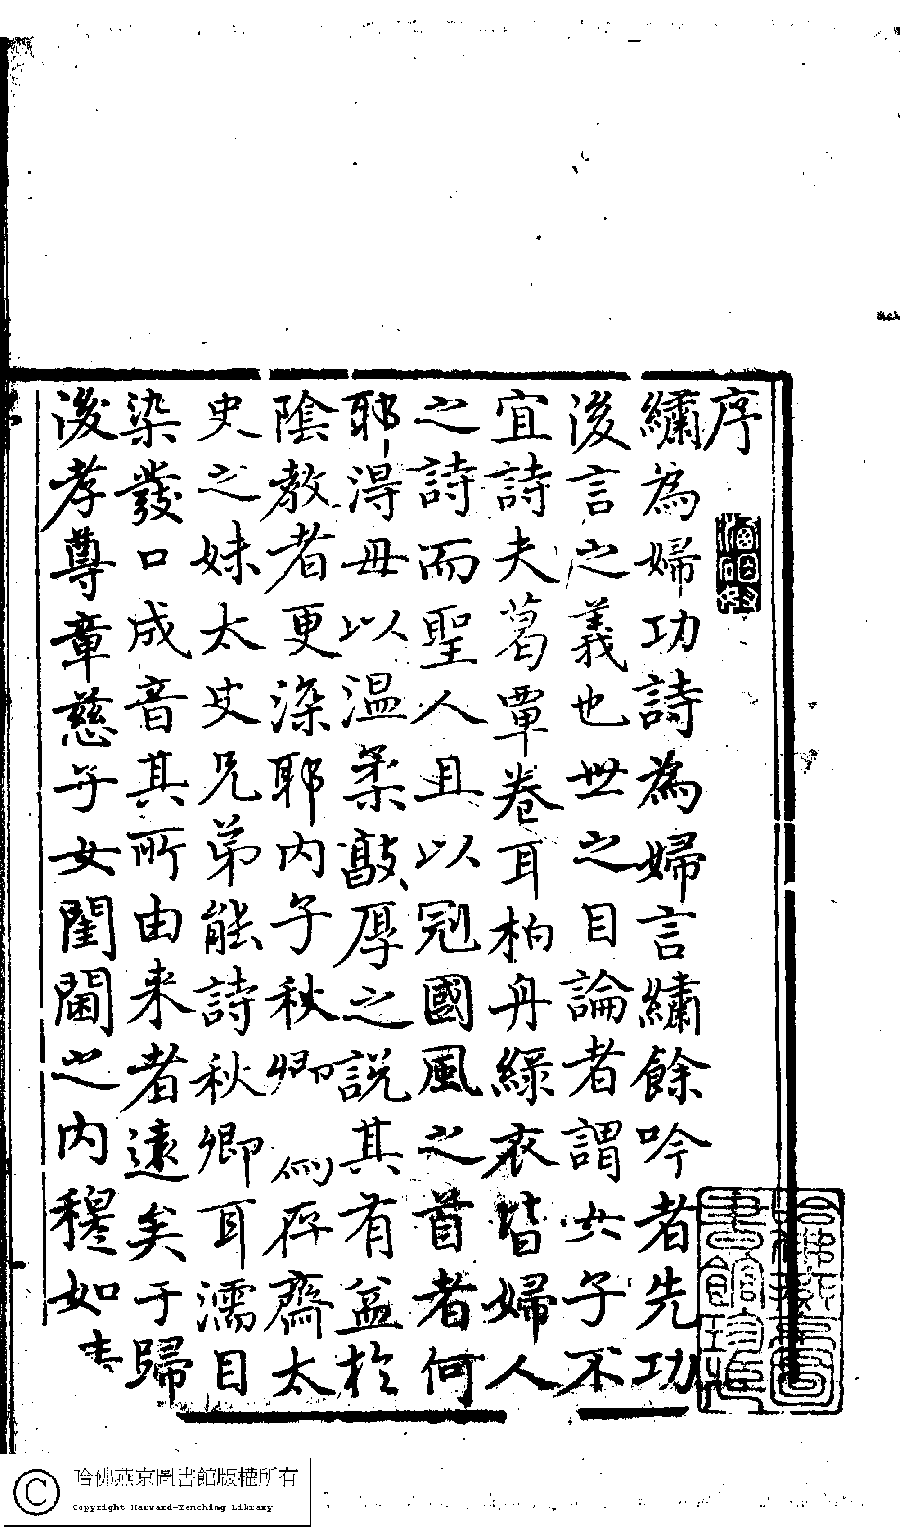 序
繡為婦功詩為婦言繡餘吟者先功
後言之義也世之目論者謂女子不
宜詩夫葛覃卷耳柏舟綠衣皆婦人
之詩而聖人且以冠國風之首者何
耶得毋以溫柔敦厚之說其有益於
陰教者更深耶內子秋卿為存齋太
史之妹太史兄弟能詩秋卿耳濡目
染發口成音其所由来者遠矣于歸
後孝尊章慈子女閨閫之內穆如
哈佛燕京圖書館版權所有
Copyright Harvard-Yenching Library